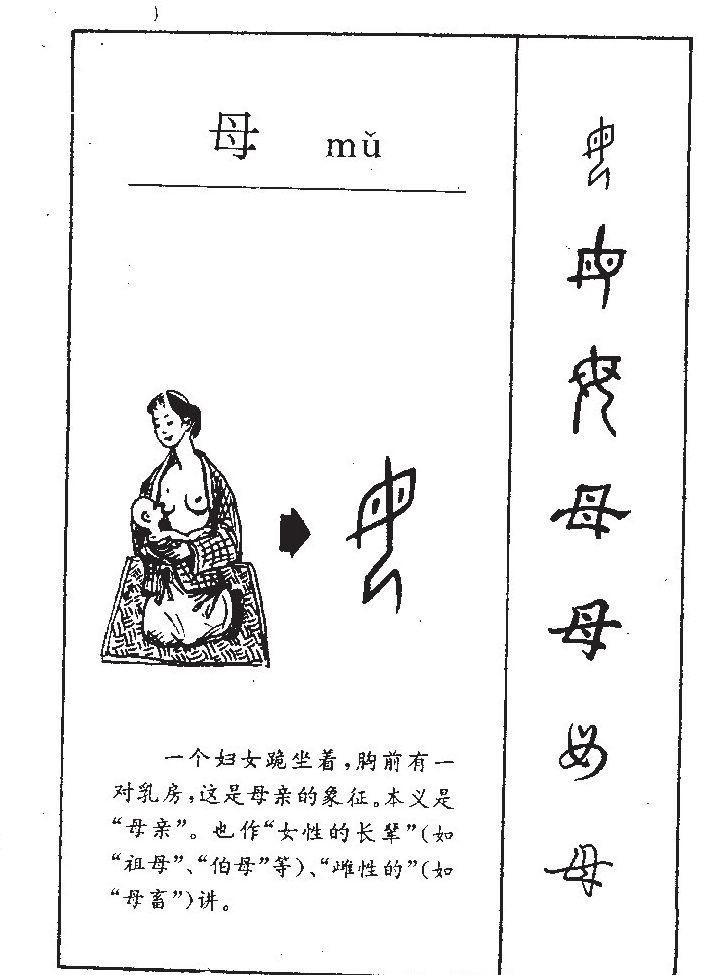 母 mǔ
一个妇女跪坐着,胸前有一
对乳房,这是母亲的象征。本义是
“母亲”。也作“女性的长辈”(如
“祖母”、“伯母”等)、“雌性的”(如
“母畜”)讲。
母
母
母
母
母
母
母